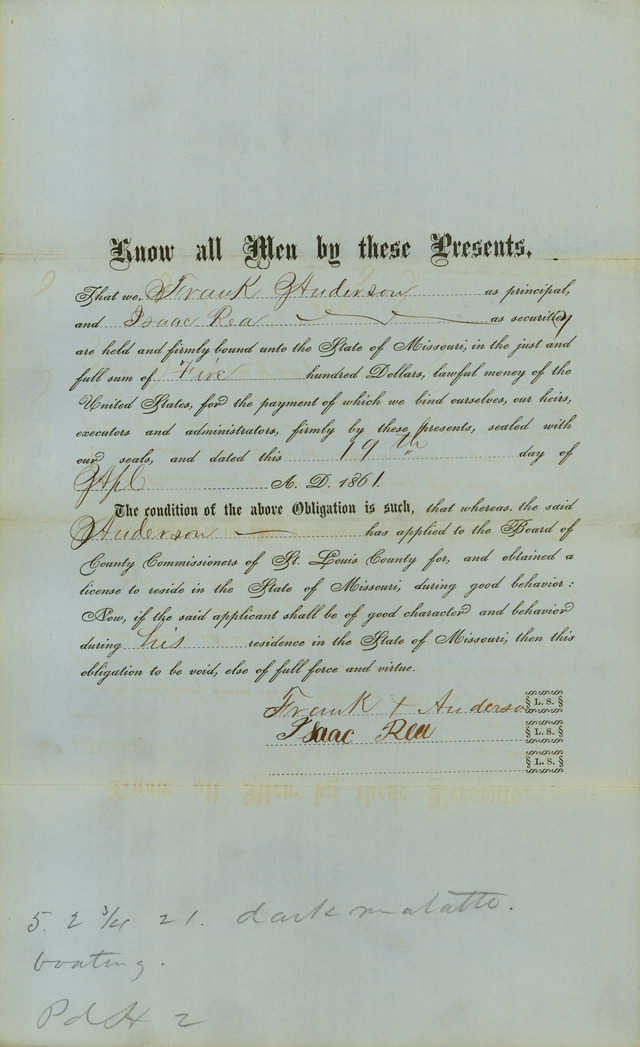 Know all Men by these Presents,
That we, Frank Anderson as principal,
and Isaac Rea as security
are held and firmly bound unto the State of Missouri, in the just and
full sum of Five hundred Dollars, lawful money of the
United States, for the payment of which we bind ourselves, our heirs,
executors and administrators, firmly by these presents, sealed with
our seals, and dated this 19th day of
Apl A. D. 1861.
The condition of the above Obligation is such, that whereas. the said
Anderson has applied to the Board of
County Commissioners of St. Louis County for, and obtained a
license to reside in the State of Missouri, during good behavior:
Now, if the said applicant shall be of good character and behavior
during his residence in the State of Missouri, then this
obligation to be void, else of full force and virtue.
Frank + Anderson L. S.
Isaac Rea L. S.
L. S.
5. 2 3/4 21. dark mulatto.
boating.
Pd 2